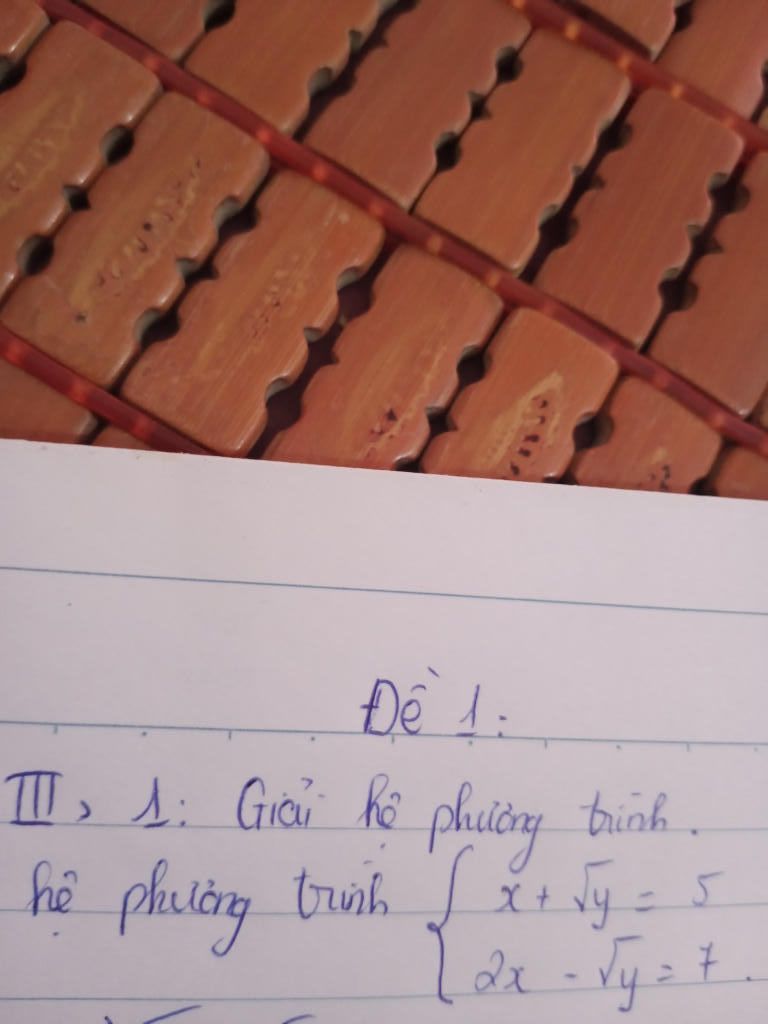 Đề 1:
III, 1: Giải hệ phương trình.
hệ phương trình { x + √y = 5
2x - √y = 7.